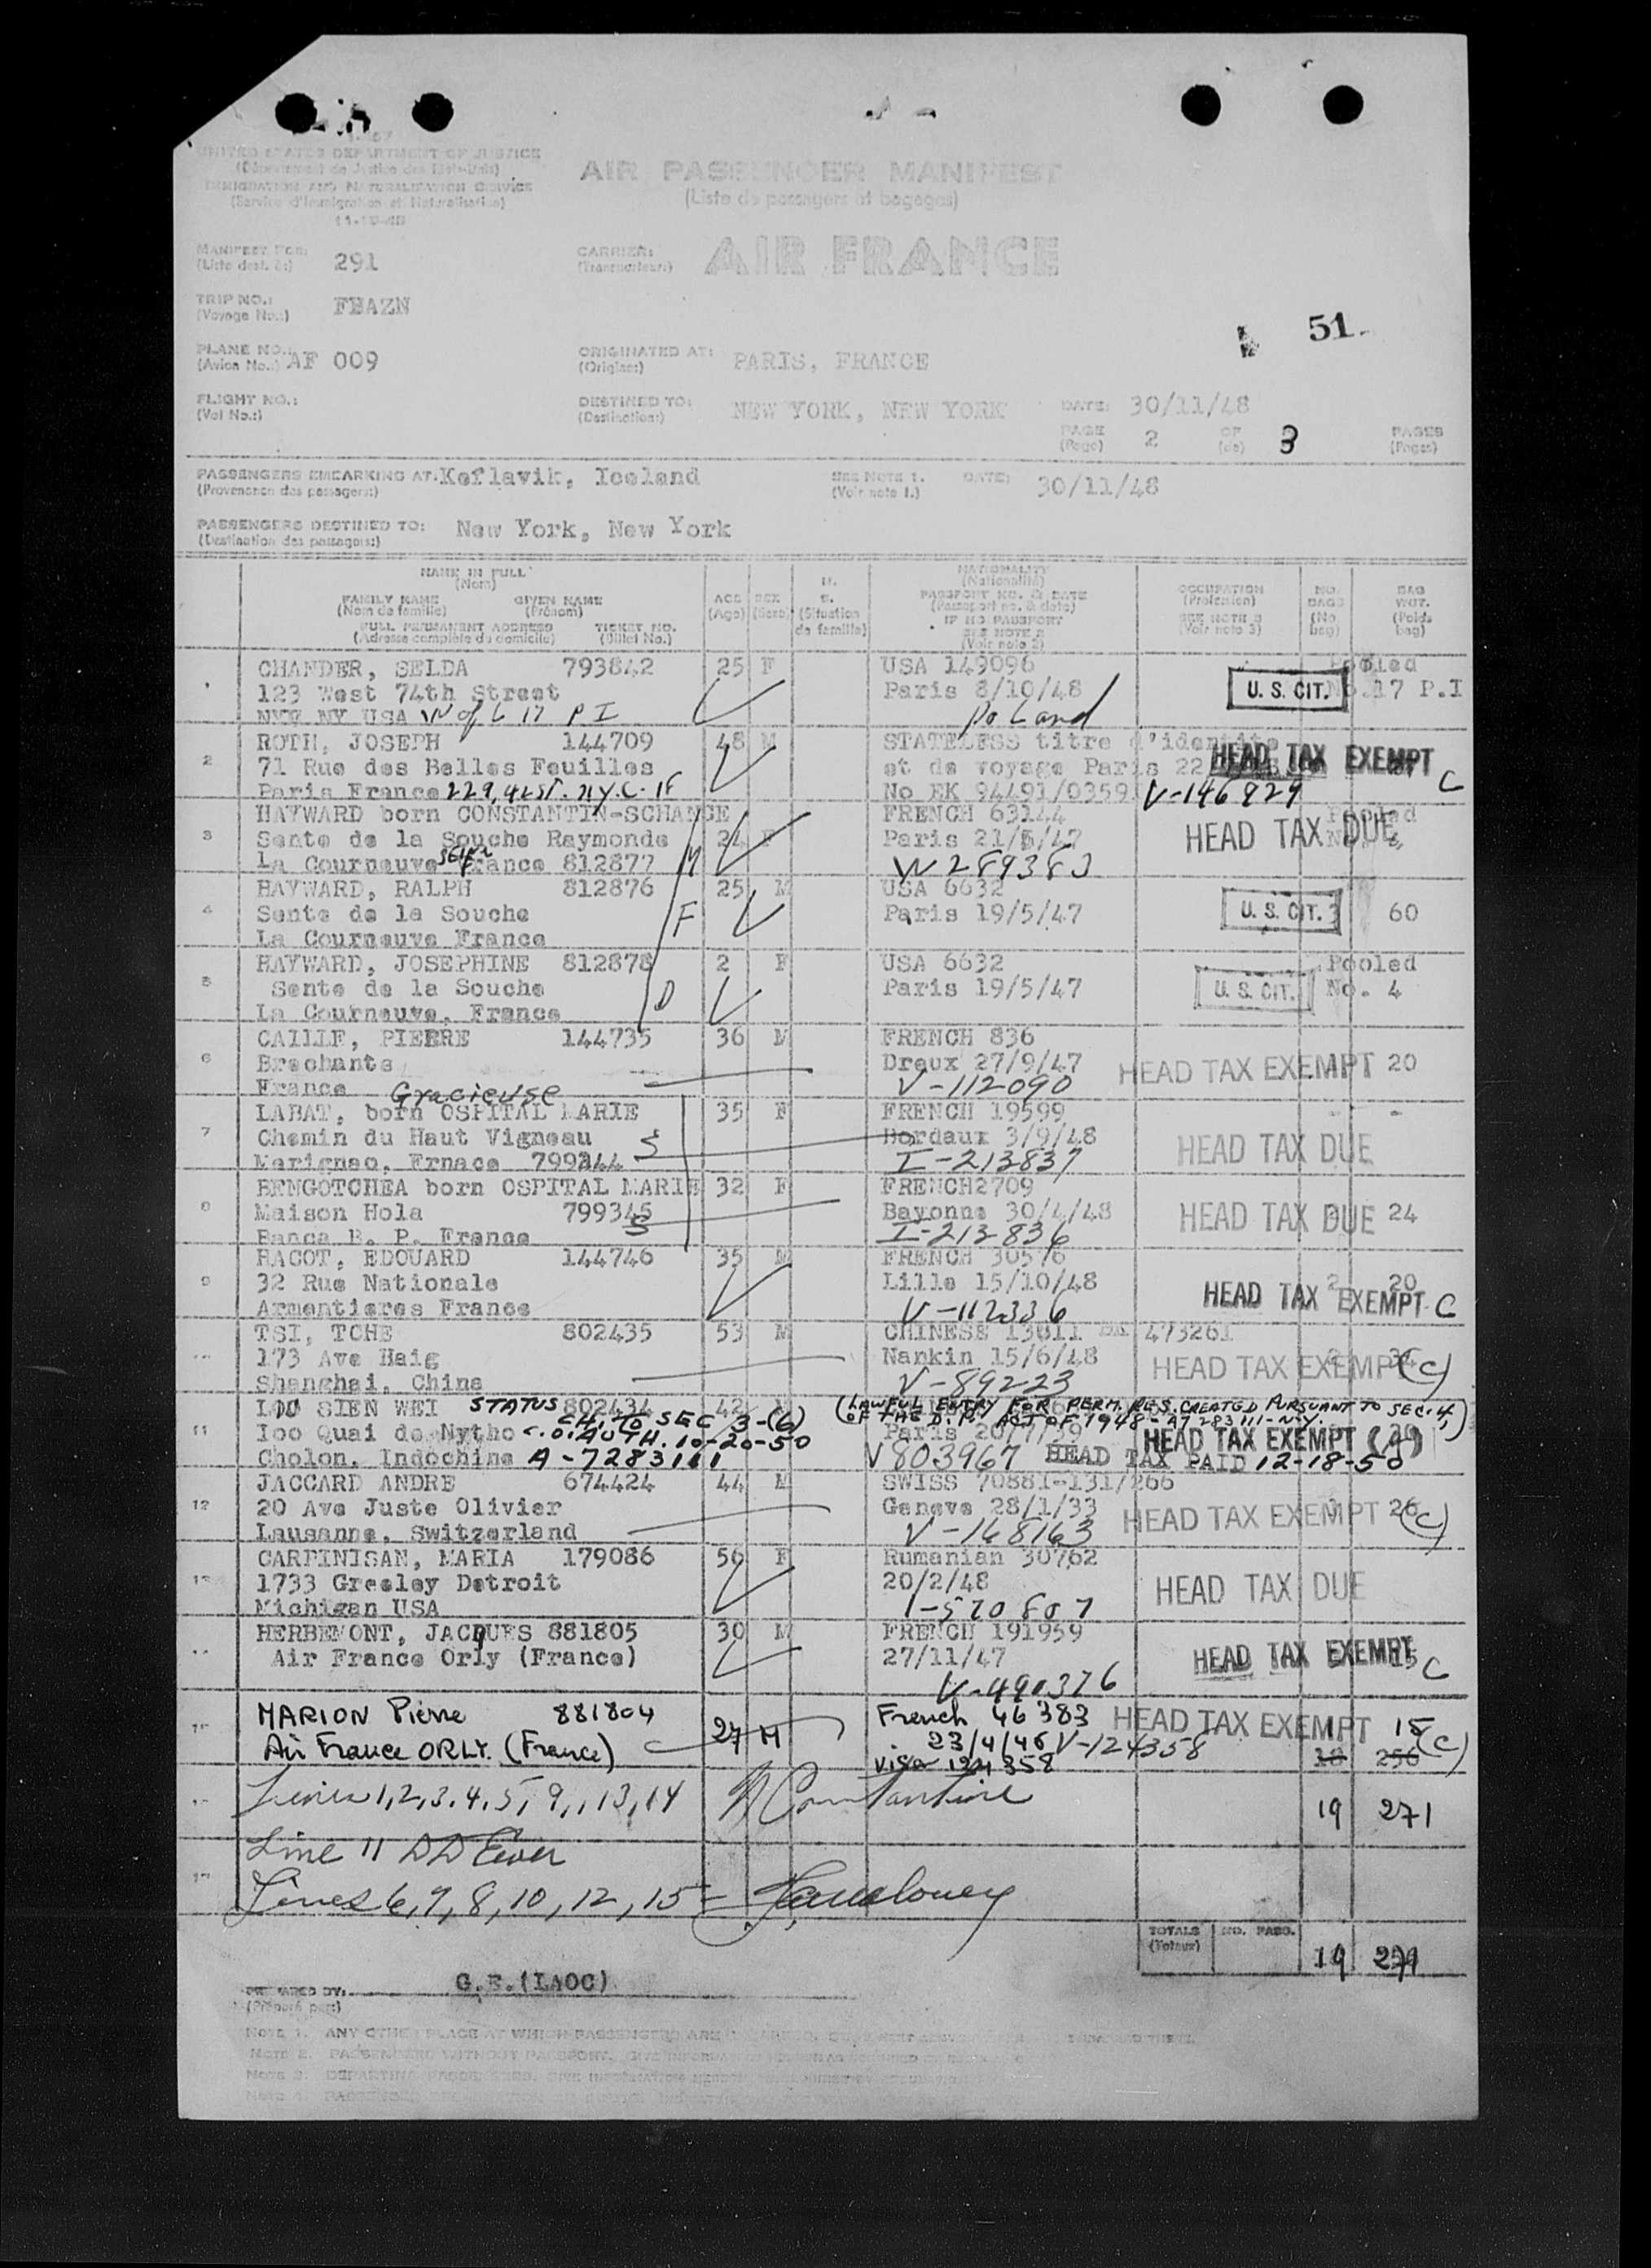 UNITED STATES DEPARTMENT OF JUSTICE
(Département de Justice des Etats-Unis)
IMMIGRATION AND NATURALIZATION SERVICE
(Service d'Immigration et Naturalisation)
AIR PASSENGER MANIFEST
(Liste de passagers et bagages)
MANIFEST FOR: 291
CARRIER: AIR FRANCE
(Transporteur:)
TRIP NO.: FBAZN
(Voyage No.:)
51.
PLANE NO.: AF 009
(Avion No.:)
ORIGINATED AT: PARIS, FRANCE
(Origine:)
FLIGHT NO.:
(Vol No.:)
DESTINED TO: NEW YORK, NEW YORK DATE: 30/11/48
(Destination:)
PAGE 2 OF 3 PAGES
(Page) (de) (Pages)
PASSENGERS EMBARKING AT: Keflavik, Iceland SEE NOTE 1. DATE: 30/11/48
(Provenance des passagers:) (Voir note 1.)
PASSENGERS DESTINED TO: New York, New York
(Destination des passagers:)
NAME IN FULL
(Nom)
FAMILY NAME GIVEN NAME
(Nom de famille) (Prénom)
FULL PERMANENT ADDRESS TICKET NO.
(Adresse complète du domicile) (Billet No.)
AGE
(Age)
SEX
(Sexe)
(Situation
de famille)
NATIONALITY
(Nationalité)
PASSPORT NO. & DATE
(Passeport no. & date)
IF NO PASSPORT
SEE NOTE 2
(Voir note 2)
OCCUPATION
(Profession)
SEE NOTE 3
(Voir note 3)
NO.
BAGS
(No.
bag)
BAG
WGT.
(Poids
bag)
CHANDER, SELDA 793842 25 F USA 149096 Pooled
123 West 74th Street Paris 8/10/48 U. S. CIT. No.17 P.I
NYC NY USA W of L 17 P I Poland
2 ROTH, JOSEPH 144709 48 M STATELESS titre d'identite
71 Rue des Belles Feuilles et de voyage Paris 22 HEAD TAX EXEMPT C
Paris France 229, 42 ST. N.Y.C. No EK 94491/0359 V-146829
3 HAYWARD born CONSTANTIN-SCHANGE FRENCH 63144 Pooled
Sente de la Souche Raymonde F Paris 21/5/47 HEAD TAX DUE
La Courneuve Seine France 812877 M
4 HAYWARD, RALPH 812876 25 M USA 6632
Sente de la Souche F Paris 19/5/47 U. S. CIT. 3 60
La Courneuve France
5 HAYWARD, JOSEPHINE 812878 2 F USA 6632 Pooled
Sente de la Souche D Paris 19/5/47 U. S. CIT. No. 4
La Courneuve, France
6 CAILLE, PIERRE 144735 36 M FRENCH 836
Brechants Dreux 27/9/47 HEAD TAX EXEMPT 20
France V-112090
Gracieuse
7 LABAT, born OSPITAL MARIE 35 F FRENCH 19599 - -
Chemin du Haut Vigneau S Bordaux 3/9/48 HEAD TAX DUE
Merignac, Ernace 799344 I-213837
8 BENGOTCHEA born OSPITAL MARIE 32 F FRENCH2709
Maison Hola 799345 S Bayonne 30/4/48 HEAD TAX DUE 24
Banca B. P. France I-213836
9 RACOT, EDOUARD 144746 35 M FRENCH 30576
32 Rue Nationale Lille 15/10/48 HEAD TAX EXEMPT C 2 20
Armentieres France V-112336
TSI, TCHE 802435 53 M CHINESE 13011 473261
173 Ave Haig Nankin 15/6/48 HEAD TAX EXEMPT (C)
Shanghai, China V-89223
11 SIEN WEI STATUS 802434 42 (LAWFUL ENTRY FOR PERM. RES. CREATED PURSUANT TO SEC. 4,
CH. TO SEC 3-(6) OF THE D.P. ACT OF 1948 - A7 283 111 - N.Y.)
Ioo Quai de Nytho C.O. AUTH. 10-20-50 Paris 20/7/39 HEAD TAX EXEMPT
Cholon, Indochine A-7283111 V803967 HEAD TAX PAID 12-18-50
12 JACCARD ANDRE 674424 44 M SWISS 70881-131/266
20 Ave Juste Olivier Geneve 28/1/33 HEAD TAX EXEMPT 26 (C)
Lausanne, Switzerland V-168163
CARPINISAN, MARIA 179086 56 F Rumanian 30762
1733 Greeley Detroit 20/2/48 HEAD TAX DUE
Michigan USA I-520807
HERBEMONT, JACQUES 881805 30 M FRENCH 191959
Air France Orly (France) 27/11/47 HEAD TAX EXEMPT C 15
V-490376
MARION Pierre 881804 27 M French 46383 HEAD TAX EXEMPT 1 15
Air France ORLY. (France) 23/4/46 V-124358 (C)
visa 124358 18 256
Lines 1,2,3,4,5,9,,13,14 Constantine 19 271
Line 11
Lines 6,7,8,10,12,15-
TOTALS NO. PASS. 19 271
(Totaux)
PREPARED BY: G.E.(LAOC)
(Préparé par:)